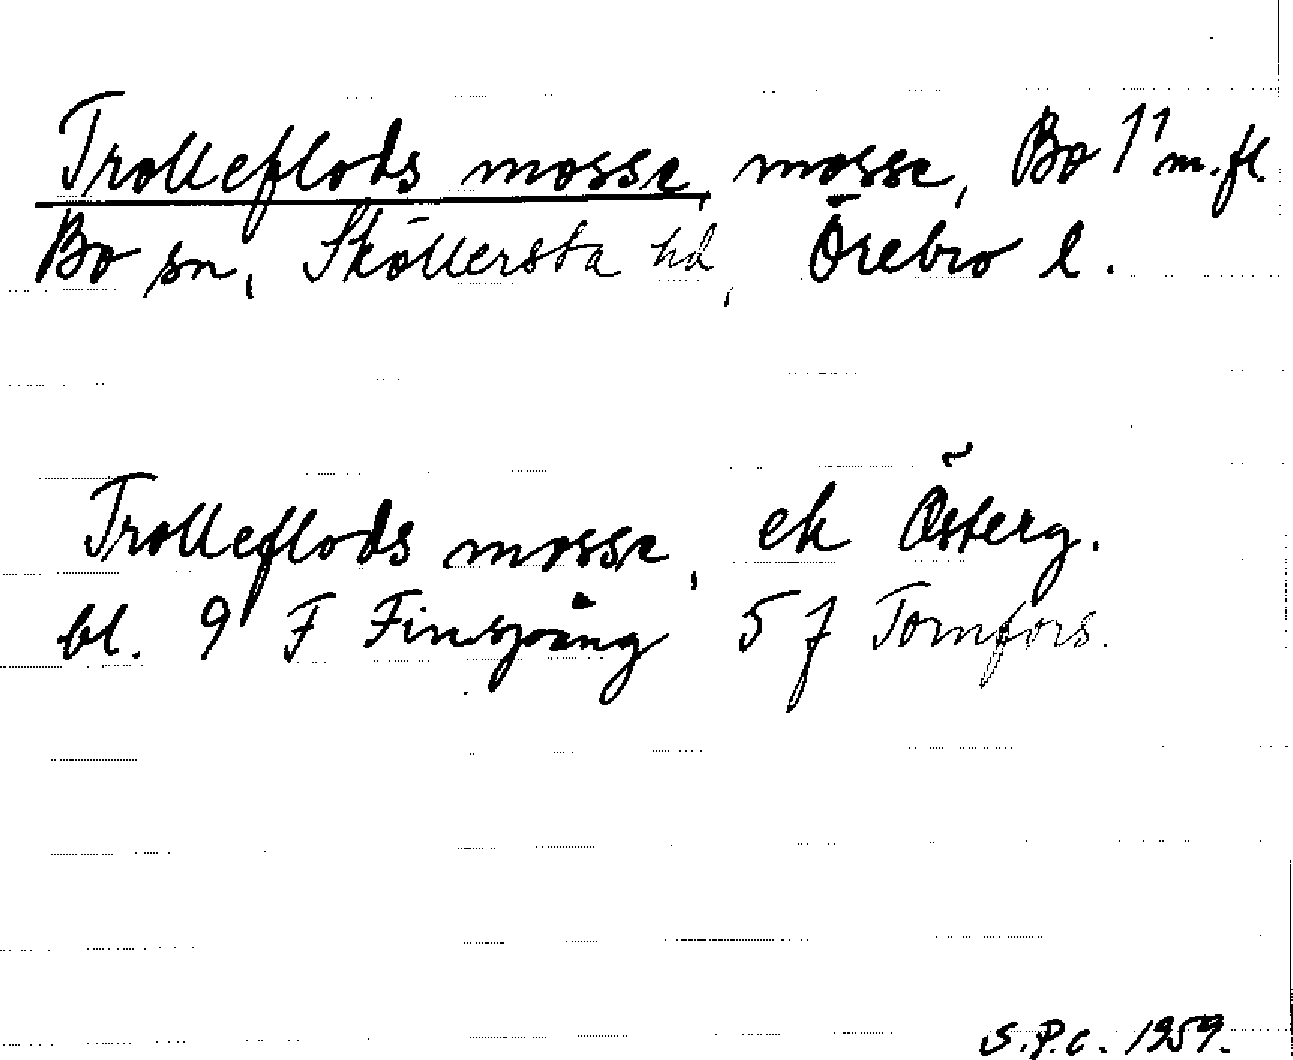 Trolleflods mosse, mosse, Bo 1¹ m.fl.
Bo sn, Sköllersta hd, Örebro l.
Trolleflods mosse, ek Österg.
bl. 9 F Finspång 5 f Tomfors.
S.P.c. 1959.